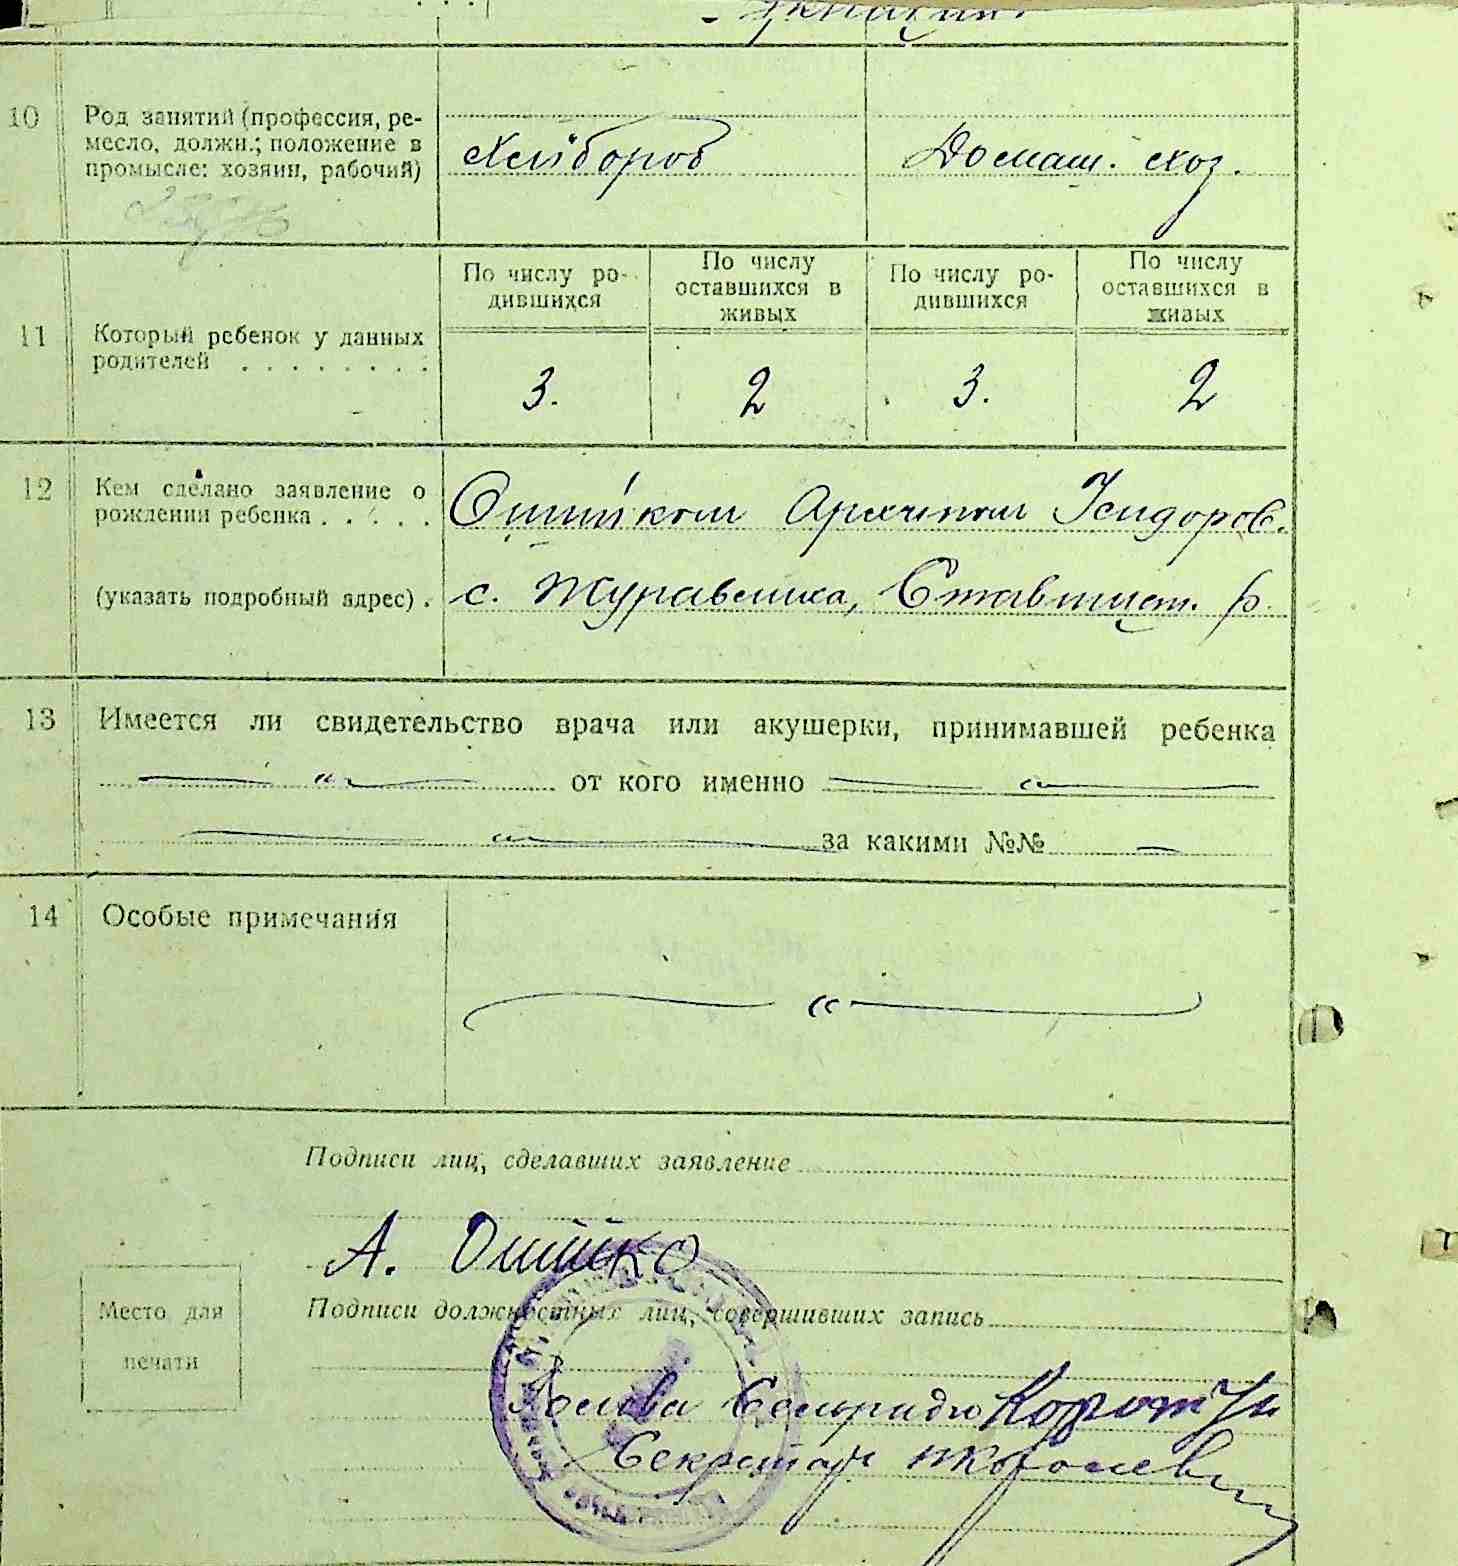 10
Род занятий (профессия, ре-
месло, должн.; положение в
промысле: хозяин, рабочий)
Хлібороб
Домаш. хоз.
11
Который ребенок у данных
родителей . . . . . . . .
По числу ро-
дившихся
По числу
оставшихся в
живых
По числу ро-
дившихся
По числу
оставшихся в
живых
3.
2
3.
2
12
Кем сделано заявление о
рождении ребенка . . . . .
(указать подробный адрес) .
Ошийком Архипом
с. Журавлиха, Ставищан. р.
13
Имеется ли свидетельство врача или акушерки, принимавшей ребенка
от кого именно
за какими №№
14
Особые примечания
Подписи лиц, сделавших заявление
А. Ошийко
Место для
печати
Подписи должностных лиц, совершивших запись
Голова Сельради
Секретарь